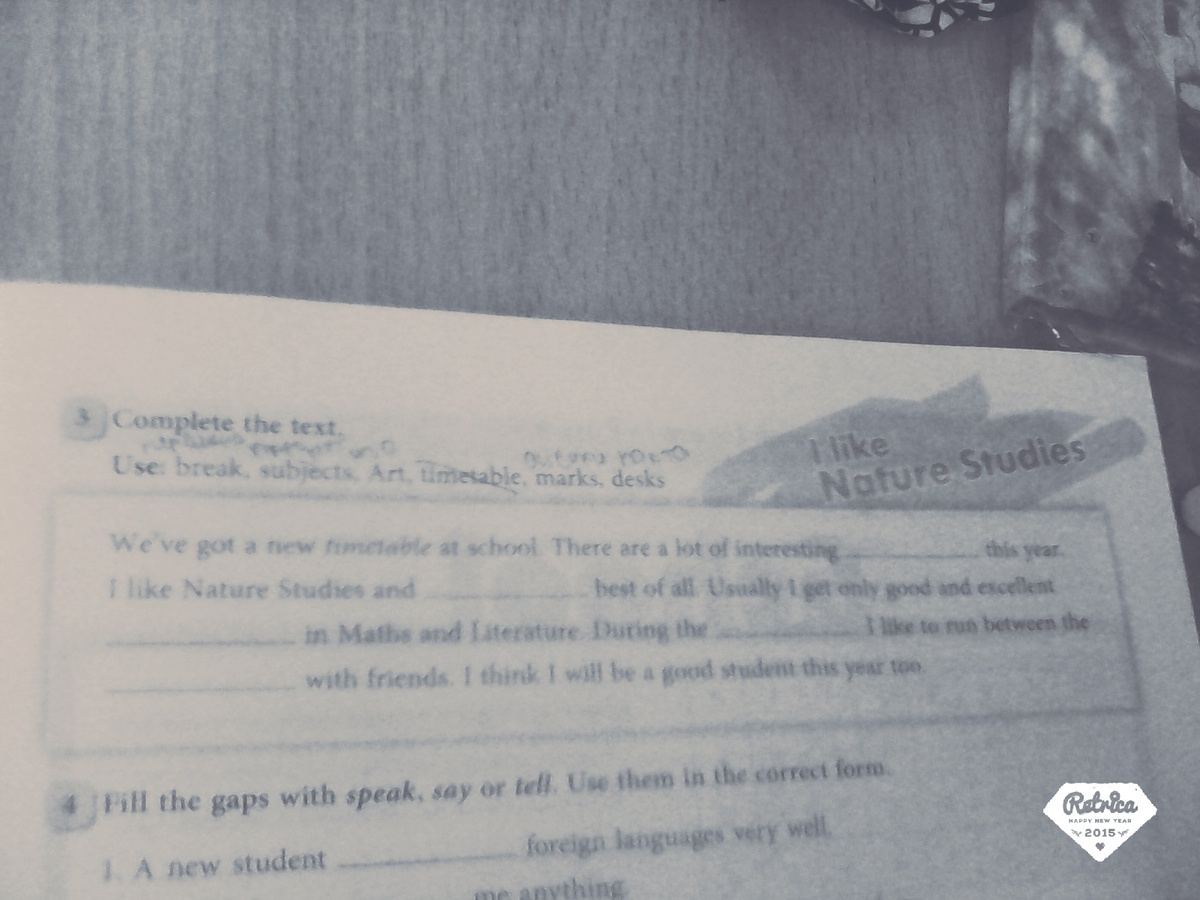 3 Complete the text.
Use: break, subjects, Art, timetable, marks, desks
I like
Nature Studies
We've got a new timetable at school. There are a lot of interesting ____________ this year.
I like Nature Studies and ____________ best of all. Usually I get only good and excellent
____________ in Maths and Literature. During the ____________ I like to run between the
____________ with friends. I think I will be a good student this year too.
4 Fill the gaps with speak, say or tell. Use them in the correct form.
1. A new student ____________ foreign languages very well.
me anything
Retrica
HAPPY NEW YEAR
2015